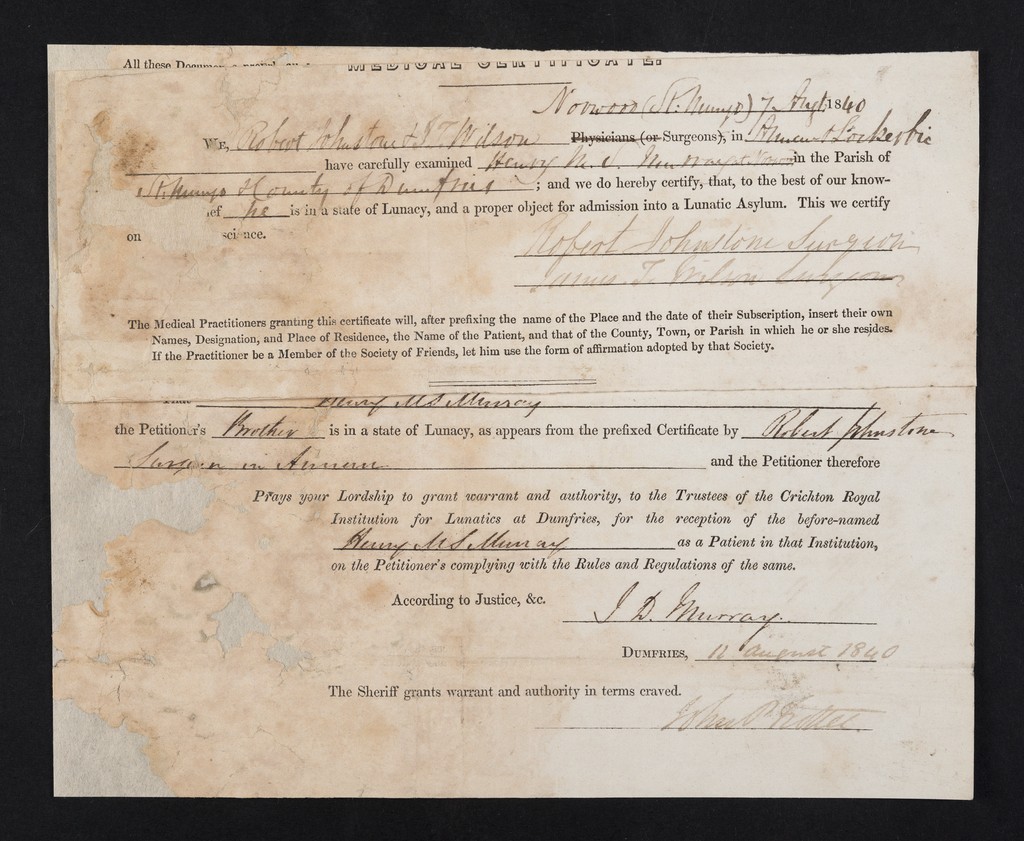 All these
MEDICAL CERTIFICATE.
Norwood (St. Mungo) 7 Augt. 1840
WE, Robert Johnstone & J. F. Wilson Physicians (or Surgeons), in Annan & Lockerbie
have carefully examined Henry M. S. Murray in the Parish of
St. Mungo & County of Dumfries ; and we do hereby certify, that, to the best of our know-
ief he is in a state of Lunacy, and a proper object for admission into a Lunatic Asylum. This we certify
on science.
Robert Johnstone Surgeon
James F. Wilson Surgeon
The Medical Practitioners granting this certificate will, after prefixing the name of the Place and the date of their Subscription, insert their own
Names, Designation, and Place of Residence, the Name of the Patient, and that of the County, Town, or Parish in which he or she resides.
If the Practitioner be a Member of the Society of Friends, let him use the form of affirmation adopted by that Society.
Henry M S Murray
the Petitioner's Brother is in a state of Lunacy, as appears from the prefixed Certificate by Robert Johnstone
Surgeon in Annan and the Petitioner therefore
Prays your Lordship to grant warrant and authority, to the Trustees of the Crichton Royal
Institution for Lunatics at Dumfries, for the reception of the before-named
Henry M S Murray as a Patient in that Institution,
on the Petitioner's complying with the Rules and Regulations of the same.
According to Justice, &c.
J. D. Murray.
DUMFRIES, 11 august 1840
The Sheriff grants warrant and authority in terms craved.
John